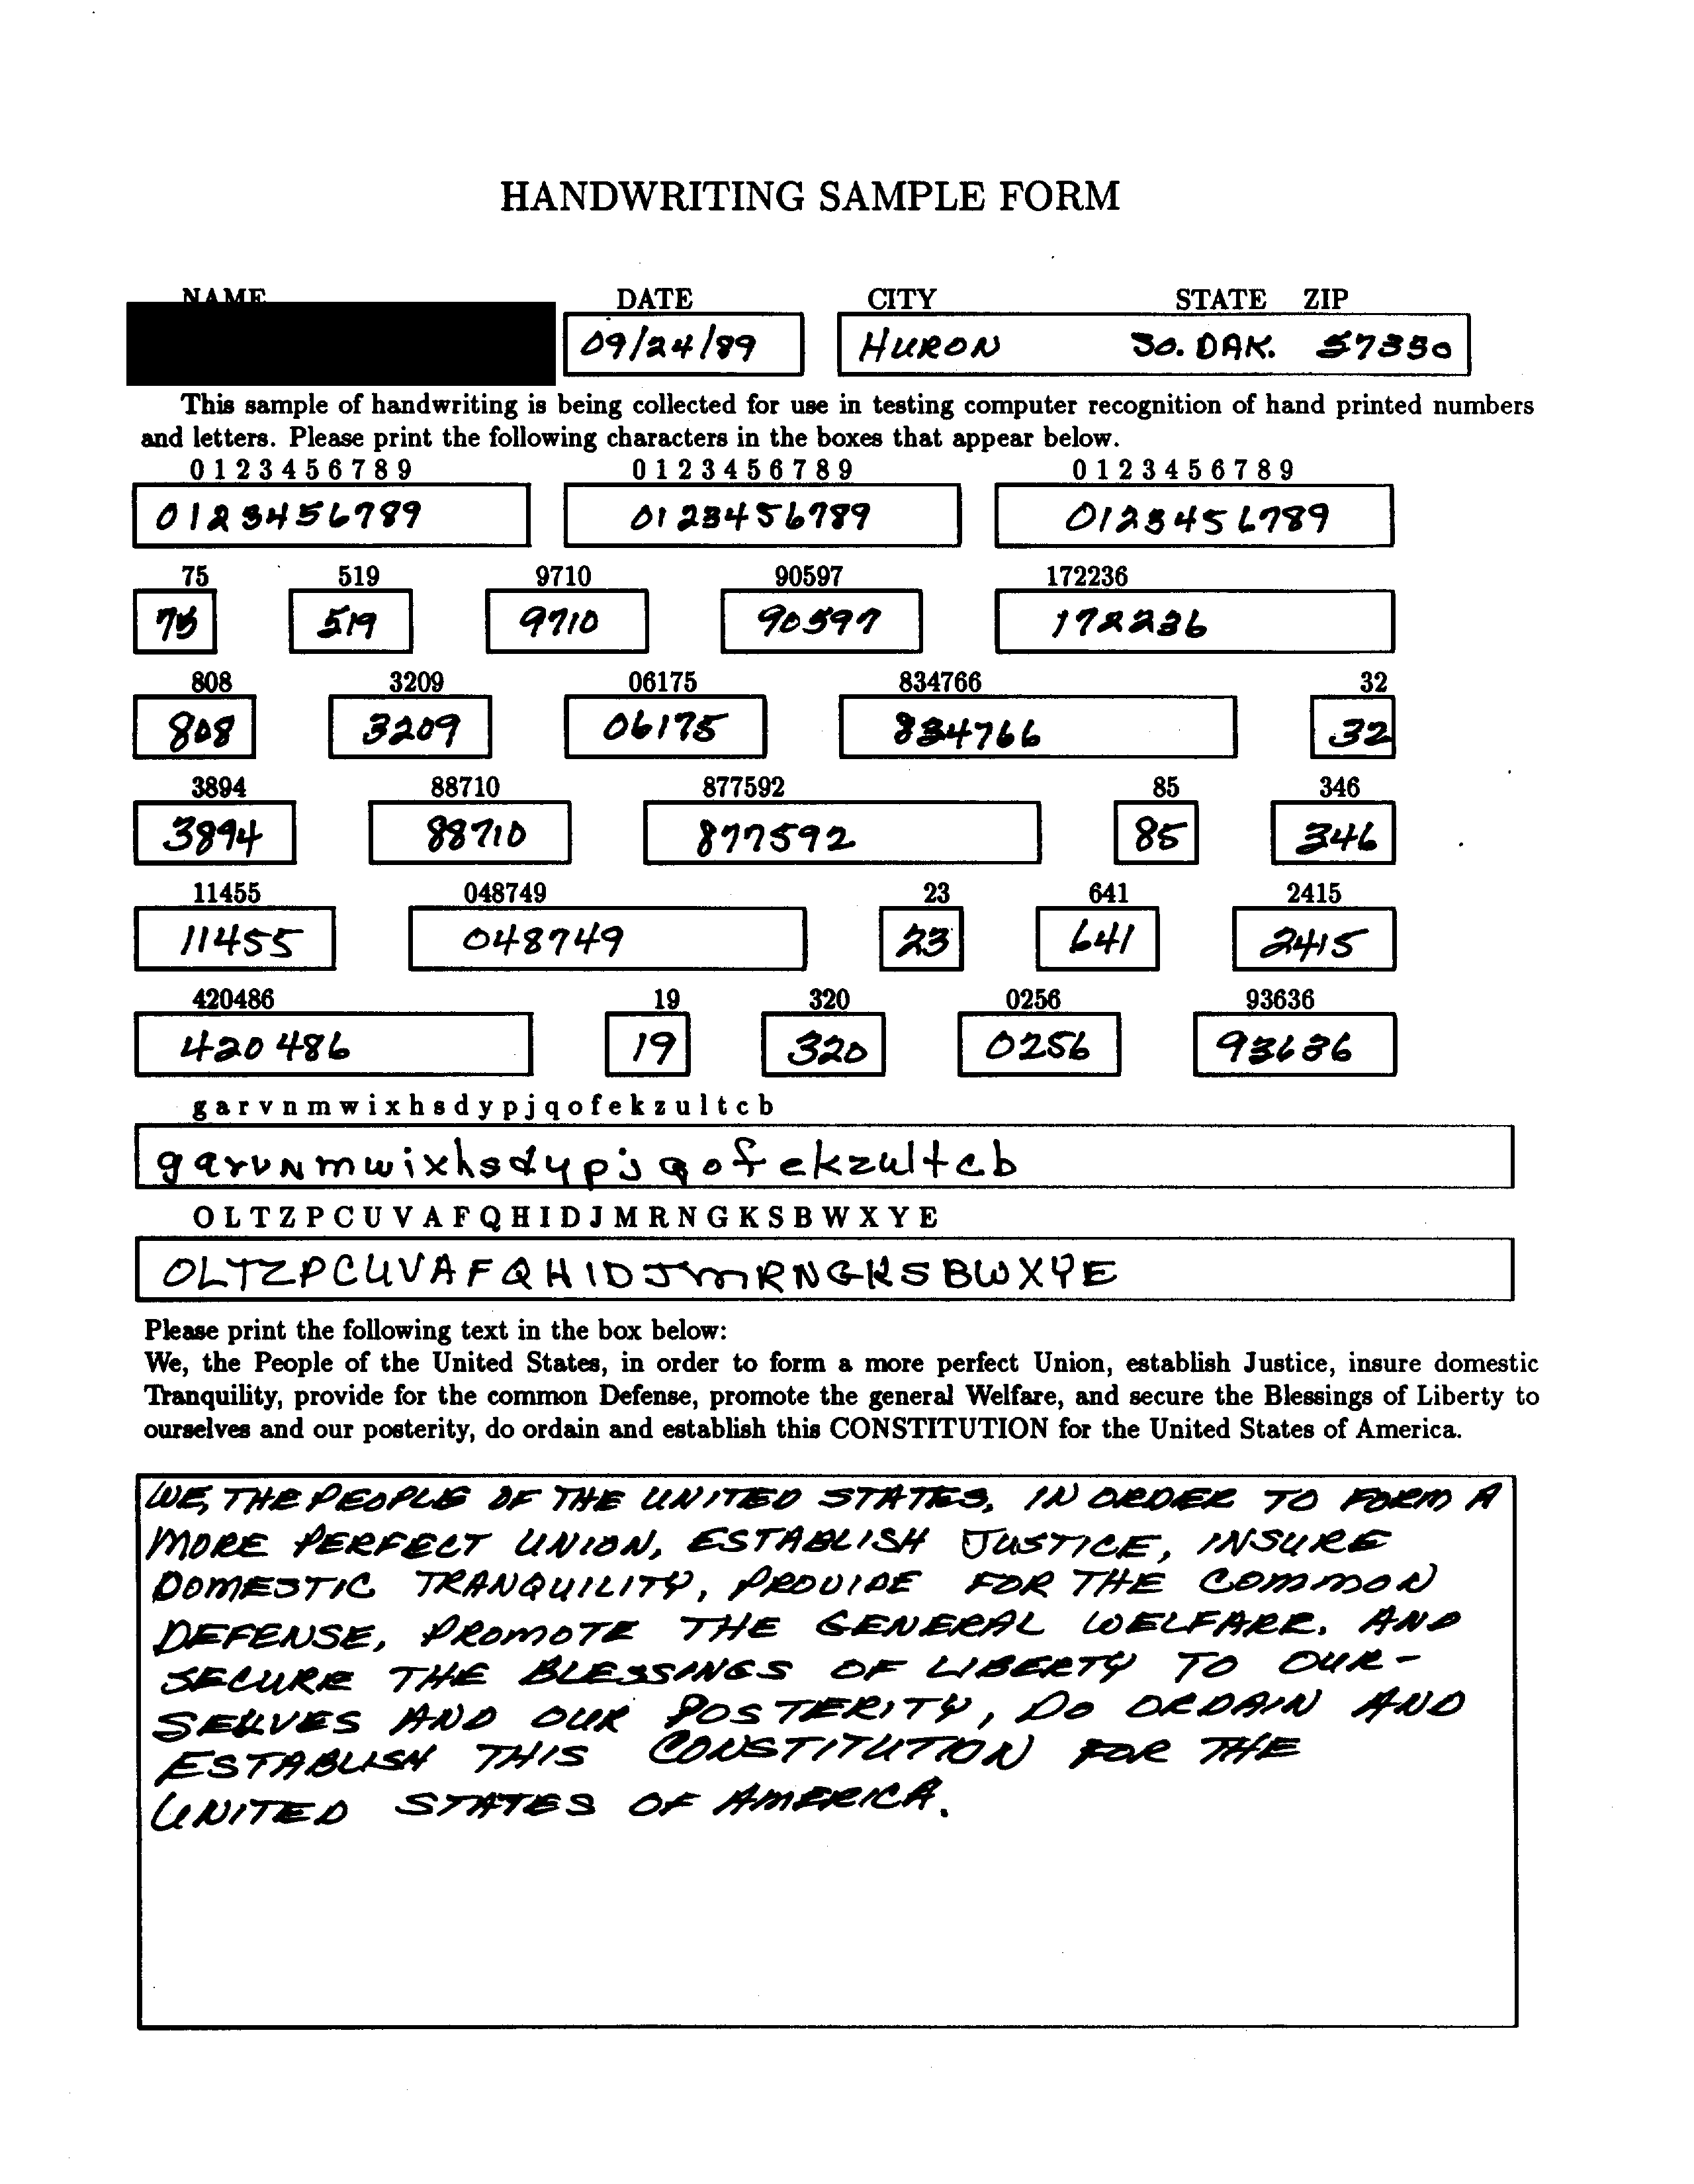 HANDWRITING SAMPLE FORM
NAME DATE CITY STATE ZIP
09/24/89 HURON SO. DAK. 57350
This sample of handwriting is being collected for use in testing computer recognition of hand printed numbers
and letters. Please print the following characters in the boxes that appear below.
0 1 2 3 4 5 6 7 8 9 0 1 2 3 4 5 6 7 8 9 0 1 2 3 4 5 6 7 8 9
0123456789 0123456789 0123456789
75 519 9710 90597 172236
75 519 9710 90597 172236
808 3209 06175 834766 32
808 3209 06175 834766 32
3894 88710 877592 85 346
3894 88710 877592 85 346
11455 048749 23 641 2415
11455 048749 23 641 2415
420486 19 320 0256 93636
420486 19 320 0256 93636
g a r v n m w i x h s d y p j q o f e k z u l t c b
garvnmwixhsdypjqofekzultcb
O L T Z P C U V A F Q H I D J M R N G K S B W X Y E
OLTZPCUVAFQHIDJMRNGKSBWXYE
Please print the following text in the box below:
We, the People of the United States, in order to form a more perfect Union, establish Justice, insure domestic
Tranquility, provide for the common Defense, promote the general Welfare, and secure the Blessings of Liberty to
ourselves and our posterity, do ordain and establish this CONSTITUTION for the United States of America.
WE, THE PEOPLE OF THE UNITED STATES, IN ORDER TO FORM A
MORE PERFECT UNION, ESTABLISH JUSTICE, INSURE
DOMESTIC TRANQUILITY, PROVIDE FOR THE COMMON
DEFENSE, PROMOTE THE GENERAL WELFARE, AND
SECURE THE BLESSINGS OF LIBERTY TO OUR-
SELVES AND OUR POSTERITY, DO ORDAIN AND
ESTABLISH THIS CONSTITUTION FOR THE
UNITED STATES OF AMERICA.